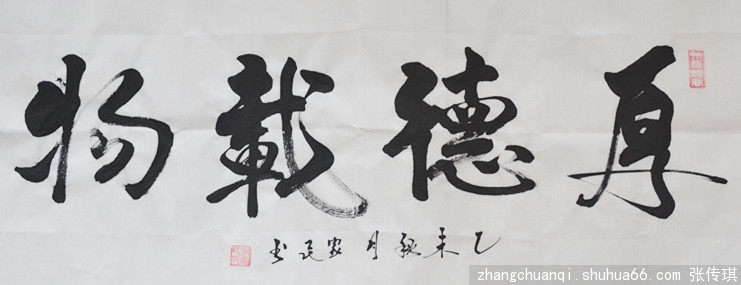 厚德載物
乙未秋月家民书
zhangchuanqi.shuhua66.com 张传琪